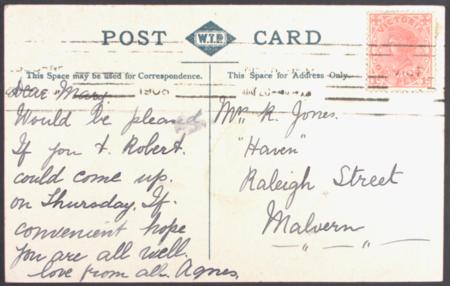 POST W.T.P. CARD
VICTORIA
This Space may be used for Correspondence.
Dear Mary. 1908
Would be pleased
If you & Robert.
could come up.
on Thursday. If.
convenient hope
you are all well.
love from all. Agnes.
This Space for Address Only.
Mrs R. Jones.
"Haven"
Raleigh Street
Malvern